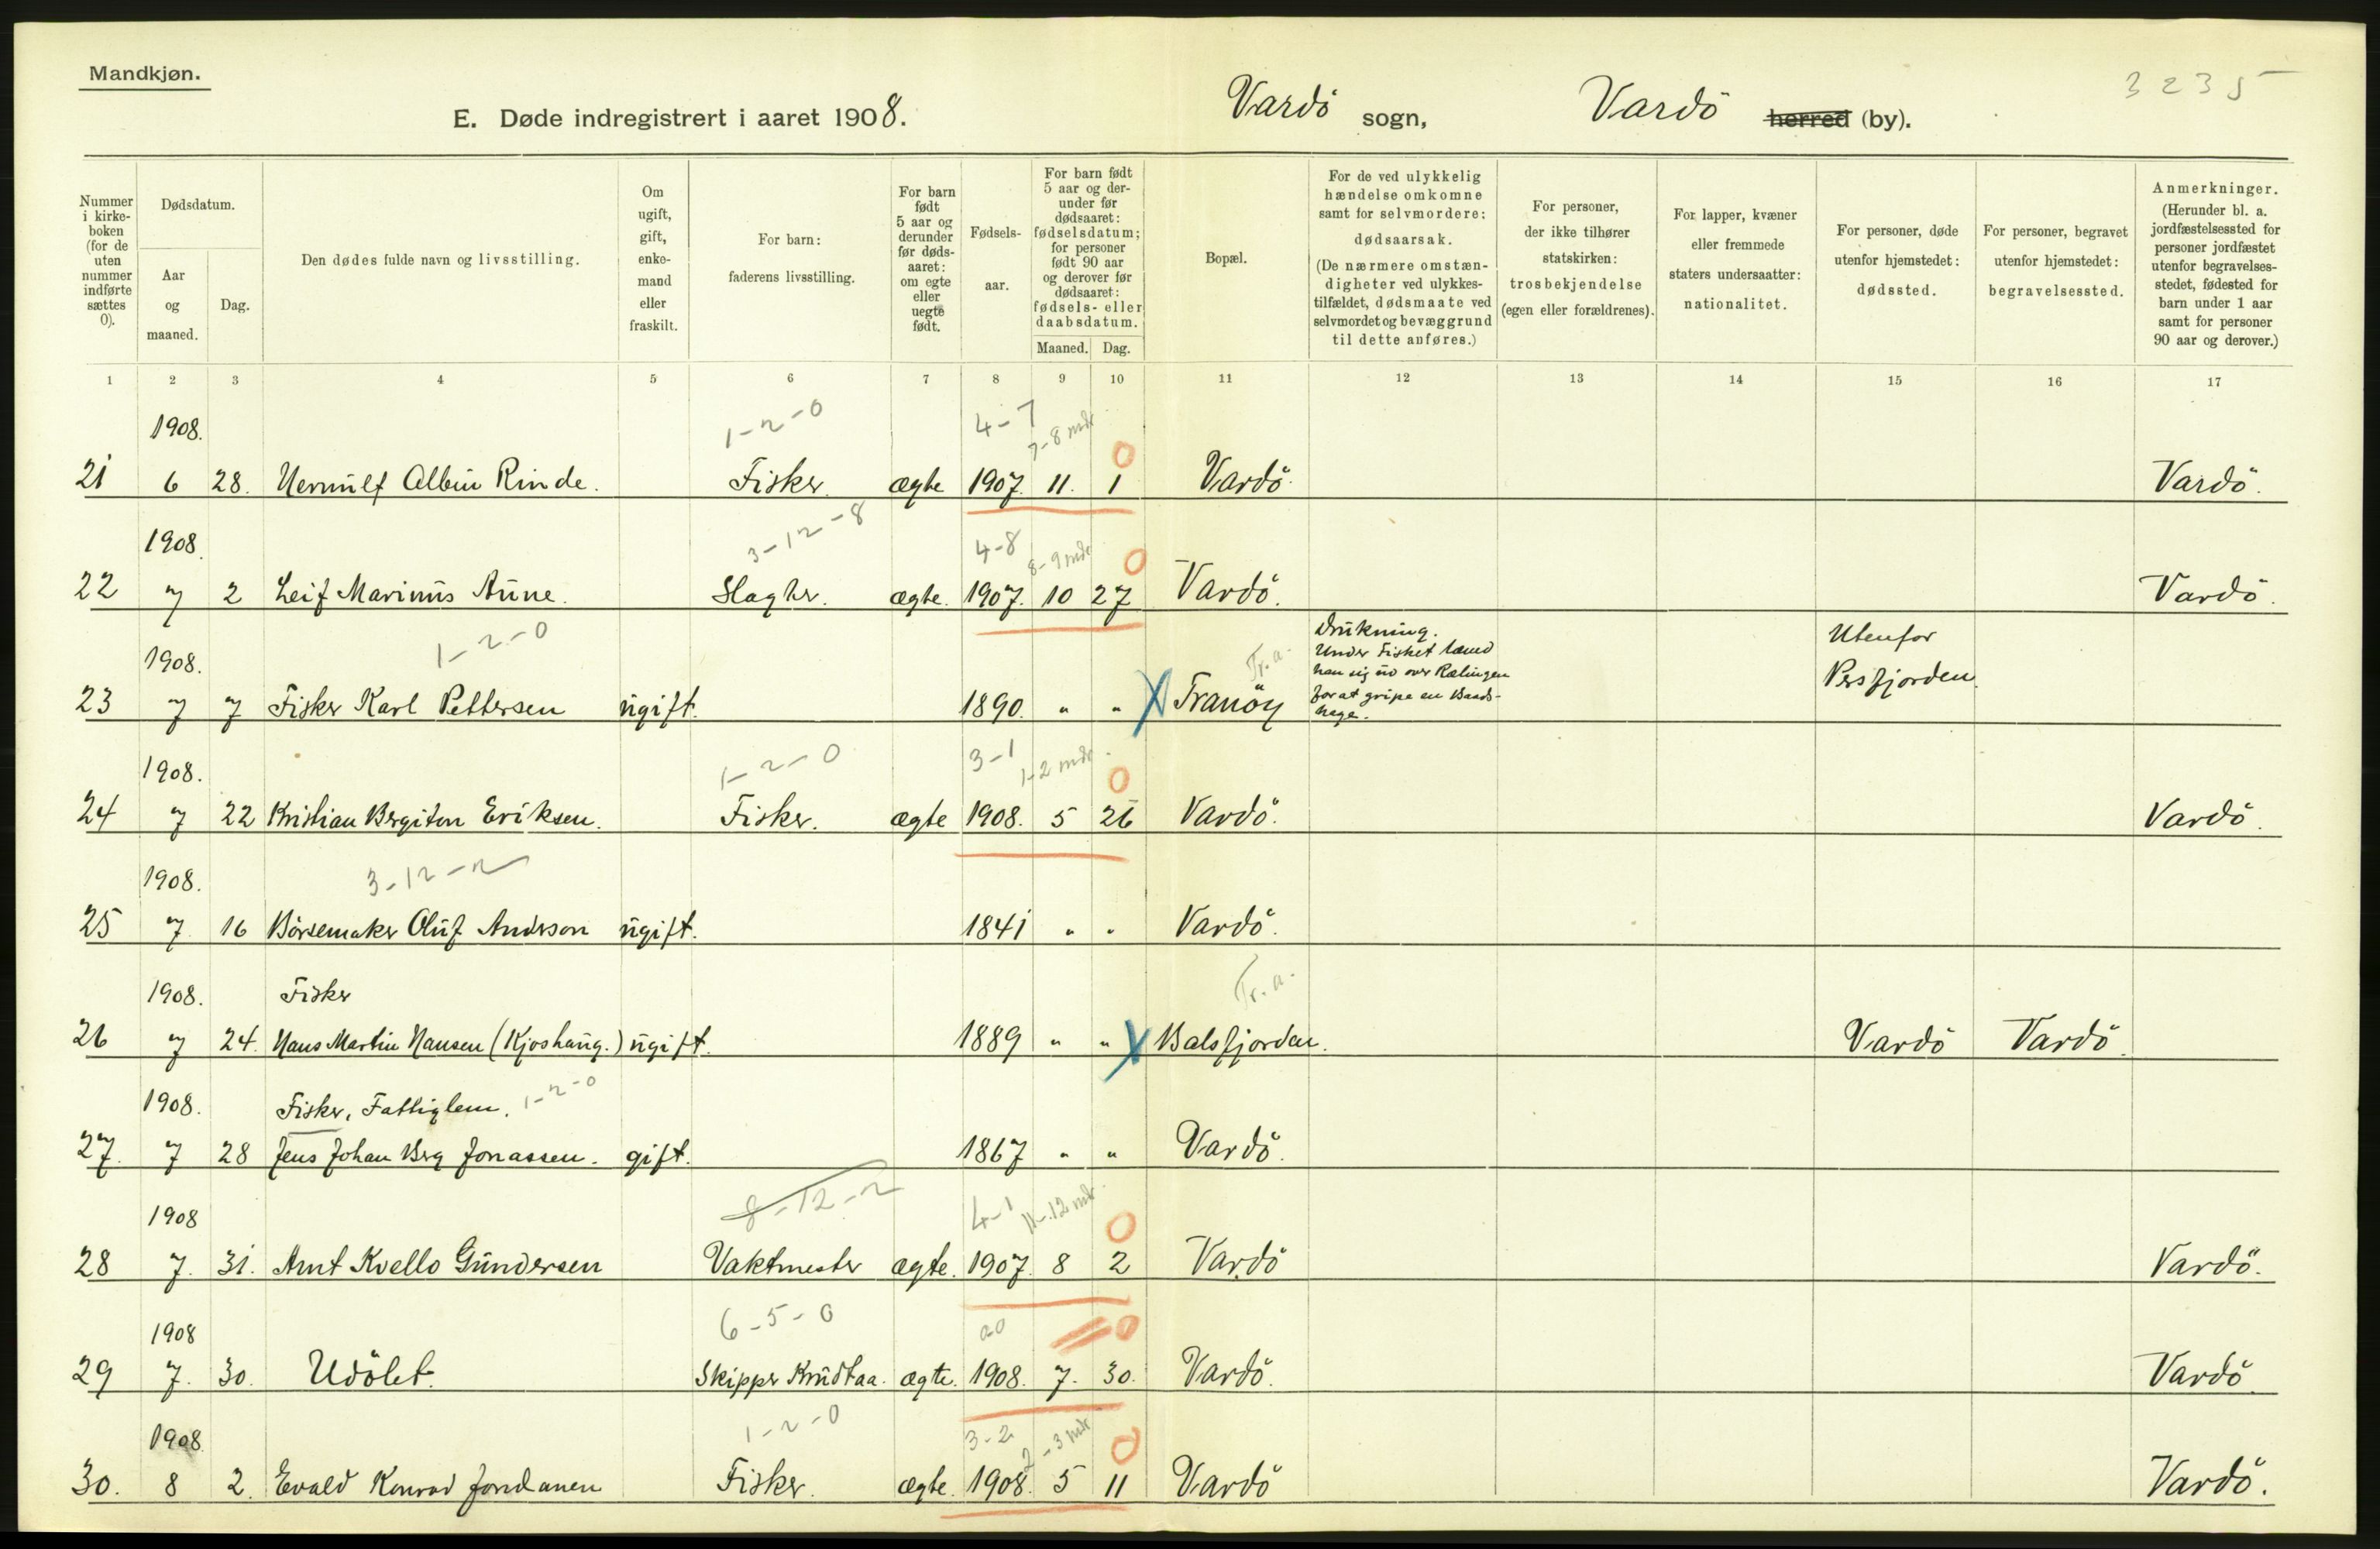 Mandkjøn.
3235
E. Døde indregistrert i aaret 1908.
Vardö sogn, Vardö herred (by).
Nummer i kirke-boken (for de uten nummer indførte sættes 0).
Dødsdatum.
Aar og maaned.
Dag.
Den dødes fulde navn og livsstilling.
Om ugift, gift, enke-mand eller fraskilt.
For barn: faderens livsstilling.
For barn født 5 aar og derunder før døds-aaret: om egte eller uegte født.
Fødsels-aar.
For barn født 5 aar og der-under før dødsaaret: fødselsdatum; for personer født 90 aar og derover før dødsaaret: fødsels- eller daabsdatum.
Maaned. Dag.
Bopæl.
For de ved ulykkelig hændelse omkomne samt for selvmordere: dødsaarsak. (De nærmere omstæn-digheter ved ulykkes-tilfældet, dødsmaate ved selvmordet og bevæggrund til dette anføres.)
For personer, der ikke tilhører statskirken: trosbekjendelse (egen eller forældrenes).
For lapper, kvæner eller fremmede staters undersaatter: nationalitet.
For personer, døde utenfor hjemstedet: dødssted.
For personer, begravet utenfor hjemstedet: begravelsessted.
Anmerkninger. (Herunder bl. a. jordfæstelsessted for personer jordfæstet utenfor begravelses-stedet, fødested for barn under 1 aar samt for personer 90 aar og derover.)
1 2 3 4 5 6 7 8 9 10 11 12 13 14 15 16 17
1908. 1-2-0 4-7 7-8 mdr 0
21 6 28. Albin Rinde. Fisker. ægte 1907. 11. 1 Vardö. Vardö.
1908. 3-12-8 4-8 8-9 mdr 0
22 7 2 Leif Marinus Aune. Slagter. ægte. 1907. 10 27 Vardö. Vardö.
1908. 1-2-0 Tr.a. Drukning. Under Fisket
Utenfor Persfjorden.
han sig ud over Rælingen
for at gripe en Baads-
hage.
23 7 7 Fisker Karl Pettersen ugift. 1890. " " X Tranöy
1908. 1-2-0 3-1 1-2 mdr. 0
24 7 22 Kristian Bergiton Eriksen. Fisker. ægte 1908. 5 26 Vardö. Vardö.
1908. 3-12-2
25 7 16 Börsemaker Oluf Anderson ugift. 1841 " " Vardö.
1908. Fisker Tr.a.
26 7 24. Hans Martin Hansen (Kjoshaug.) ugift. 1889 " " X Balsfjorden. Vardö Vardö.
1908. Fisker, Fattiglem. 1-2-0
27. 7 28 Jens Johan Berg Jonassen. gift. 1867 " " Vardö.
1908 8-12-2 4-1 11-12 mdr. 0
28 7. 31. Arnt Kvello Gundersen Vaktmester ægte. 1907. 8 2 Vardö Vardö.
1908 6-5-0 00 0
29 7. 30. Udöbt. Skipper Knudtaa. ægte. 1908. 7. 30. Vardö. Vardö.
1908 1-2-0 3-2 2-3 mdr 0
30. 8 2. Evald Konrad Fisker. ægte. 1908. 5 11 Vardö Vardö.